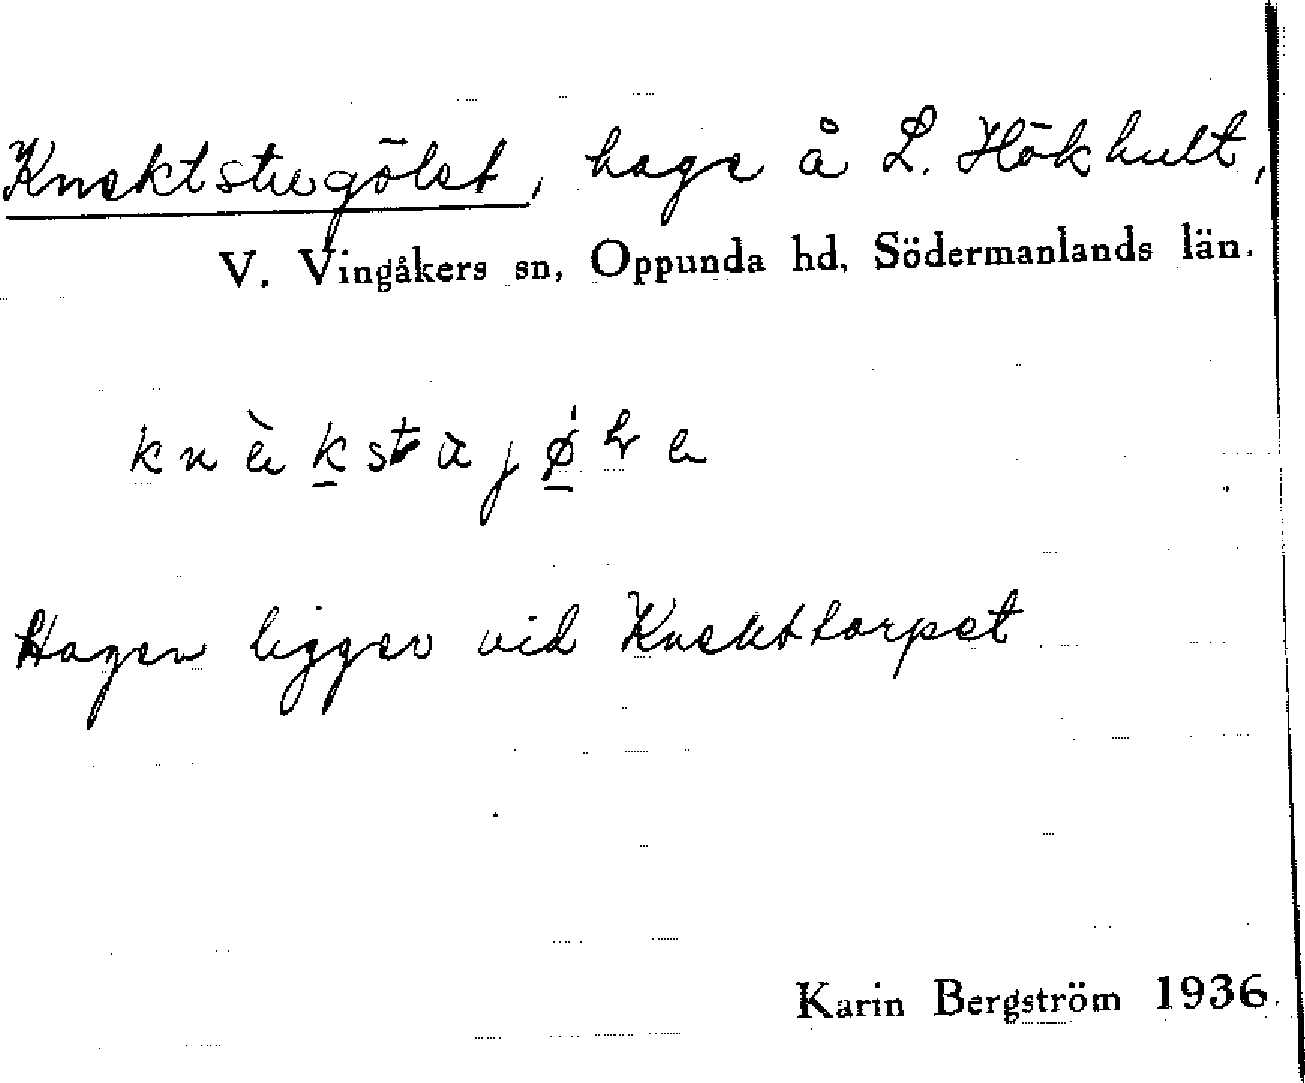 Knektstugölet, hage å L. Hökhult,
V. Vingåkers sn, Oppunda hd, Södermanlands län.
Hagen ligger vid Knekttorpet
Karin Bergström 1936